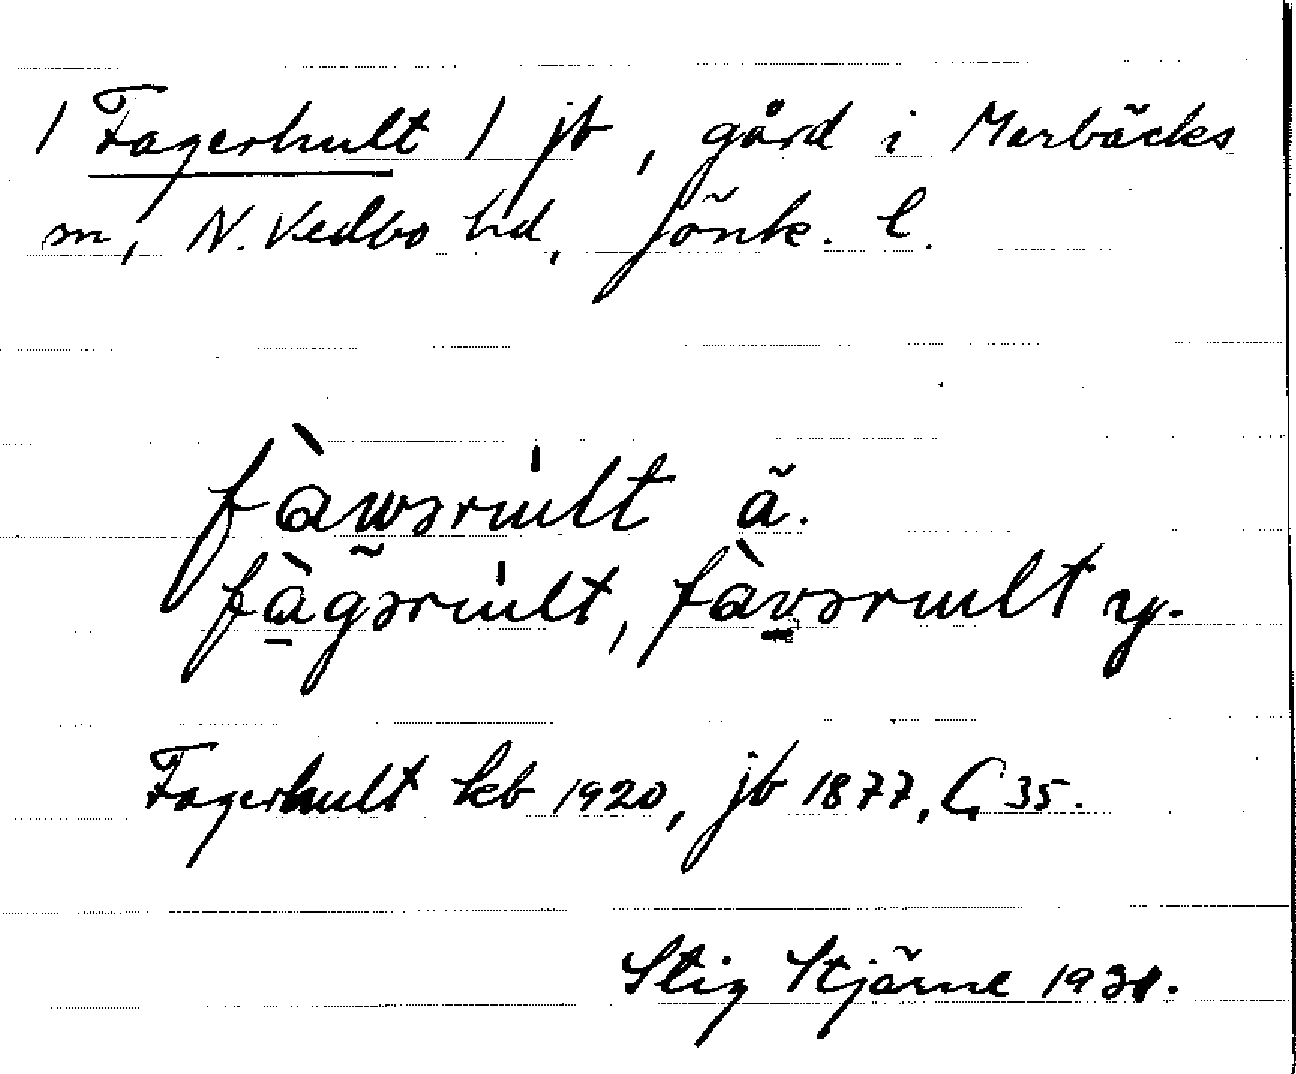 / Fagerhult / jb, gård i Marbäcks
sn, N. Vedbo hd, Jönk. l.
fàwərult ä.
fàgərult, fàvərult y.
Fagerhult kb 1920, jb 1877, G 35.
Stig Stjärne 1931.